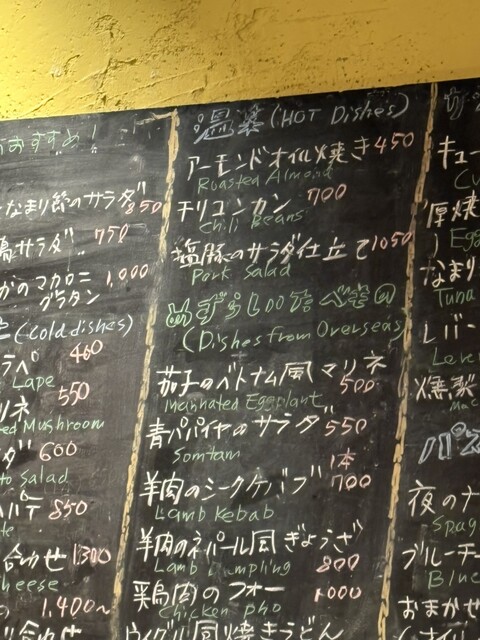 おすすめ!
なまり節のサラダ 850
サラダ 750
マカロニ 1,000
グラタン
(Cold dishes)
460
Lape
550
Mushroom
600
Salad
850
合わせ 1300
Cheese
1,400~
合わせ
温菜 (HOT Dishes)
アーモンドオイル焼き 450
Roasted Almond
チリコンカン 700
Chili Beans
塩豚のサラダ仕立て 1050
Pork Salad
(Dishes from Overseas)
茄子のベトナム風マリネ
Marinated Eggplant 500
青パパイヤのサラダ 550
Somtam
1本
羊肉のシークケバブ 700
Lamb Kebab
羊肉のネパール風ぎょうざ
Lamb Dumpling 800
鶏肉のフォー 1000
Chicken pho
ウイグル風焼きうどん
キュー
厚焼
Egg
なまり
Tuna
レバー
Lever
燻製
パス
夜のナ
Spag
ブルーチー
Blue
おまかせ